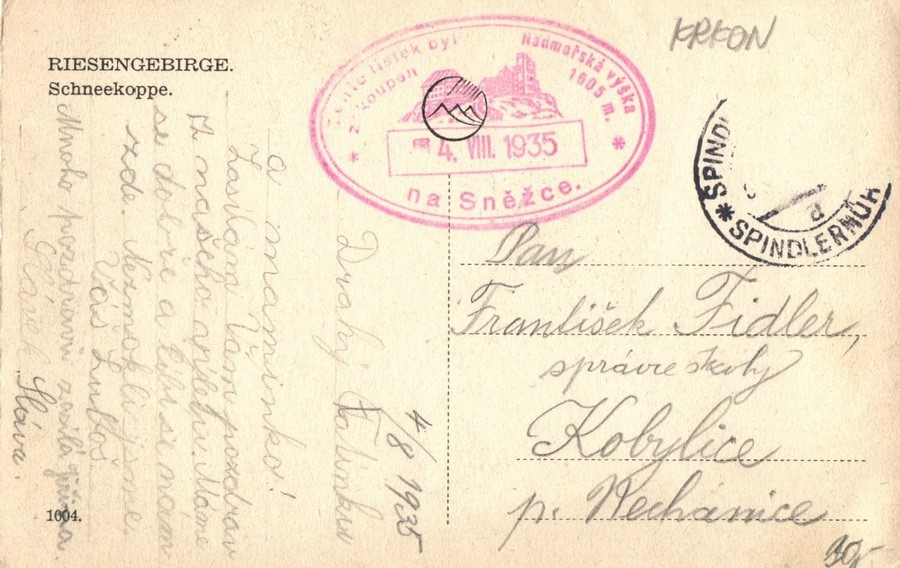 RIESENGEBIRGE.
Schneekoppe.
Tento lístek byl
zakoupen
Nadmořská výška
1605 m.
4. VIII. 1935
na Sněžce.
KRKON
SPINDLERMÜH
4/8 1935
Drahý Tatínku
a maminko!
Zasílám Vám pozdrav
z našeho výletu. Máme
se dobře a líbí se nám
zde. Nezmokli jsme.
Váš Luboš.
Mnoho pozdravů zasílá
Sláva
Pan
František Fidler,
správce školy
Kobylice
p. Nechanice
1004.
30,-